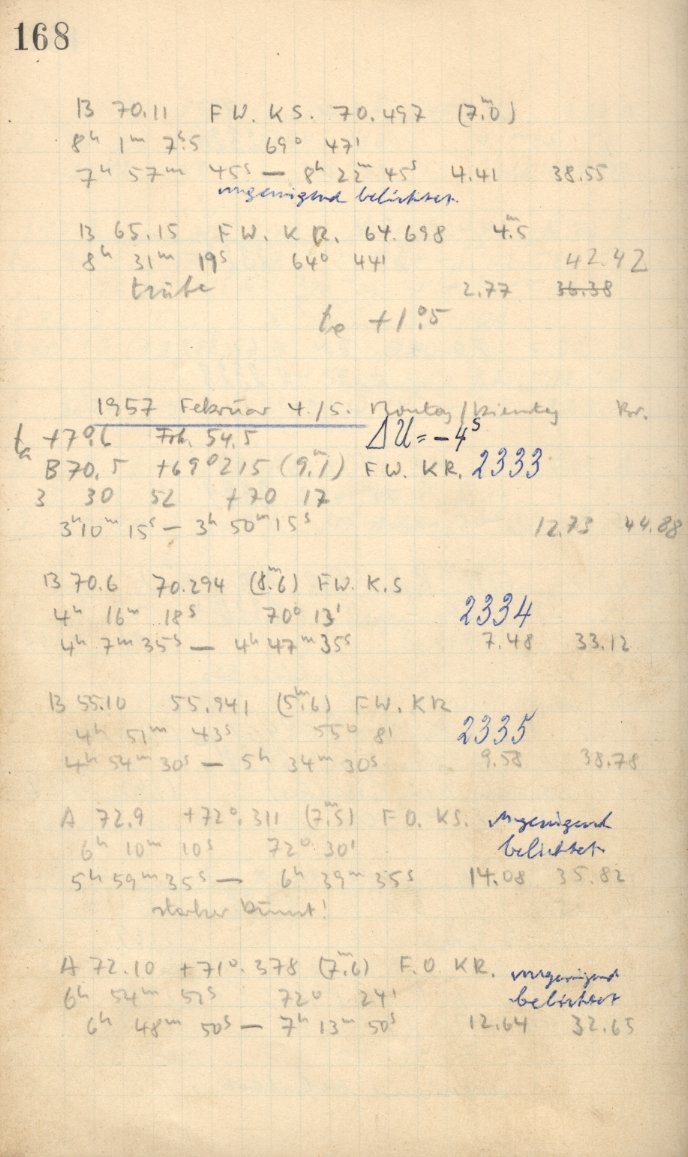 168
B 70.11 F W. K S. 70.497 (7.ᵐ0)
8ʰ 1ᵐ 7ˢ.5 69° 47'
7ʰ 57ᵐ 45ˢ — 8ʰ 22ᵐ 45ˢ 4.41 38.55
ungenügend belichtet.
B 65.15 F W. K R. 64.698 4.ᵐ5
8ʰ 31ᵐ 19ˢ 64° 44' 42.42
trübe 2.77 36.38
tₑ +1°.5
1957 Februar 4./5. Montag/Dienstag Kr.
tₐ +7°.6 Fok. 54.5 ΔU = -4ˢ
B 70.5 +69°215 (9.ᵐ1) F W. K R. 2333
3 30 52 +70 17
3ʰ10ᵐ 15ˢ — 3ʰ 50ᵐ 15ˢ 12.73 44.88
B 70.6 70.294 (8.ᵐ6) F W. K.S
4ʰ 16ᵐ 18ˢ 70° 13' 2334
4ʰ 7ᵐ 35ˢ — 4ʰ 47ᵐ 35ˢ 7.48 33.12
B 55.10 55.941 (5.ᵐ6) F W. K R
4ʰ 51ᵐ 43ˢ 55° 8' 2335
4ʰ 54ᵐ 30ˢ — 5ʰ 34ᵐ 30ˢ 9.58 38.78
A 72.9 +72°.311 (7.ᵐ5) F O. K S. ungenügend
6ʰ 10ᵐ 10ˢ 72° 30' belichtet
5ʰ 59ᵐ 35ˢ — 6ʰ 39ᵐ 35ˢ 14.08 35.82
starker Dunst!
A 72.10 +71°.378 (7.ᵐ6) F. O K R. ungenügend
6ʰ 54ᵐ 52ˢ 72° 24' belichtet
6ʰ 48ᵐ 50ˢ — 7ʰ 13ᵐ 50ˢ 12.64 32.65